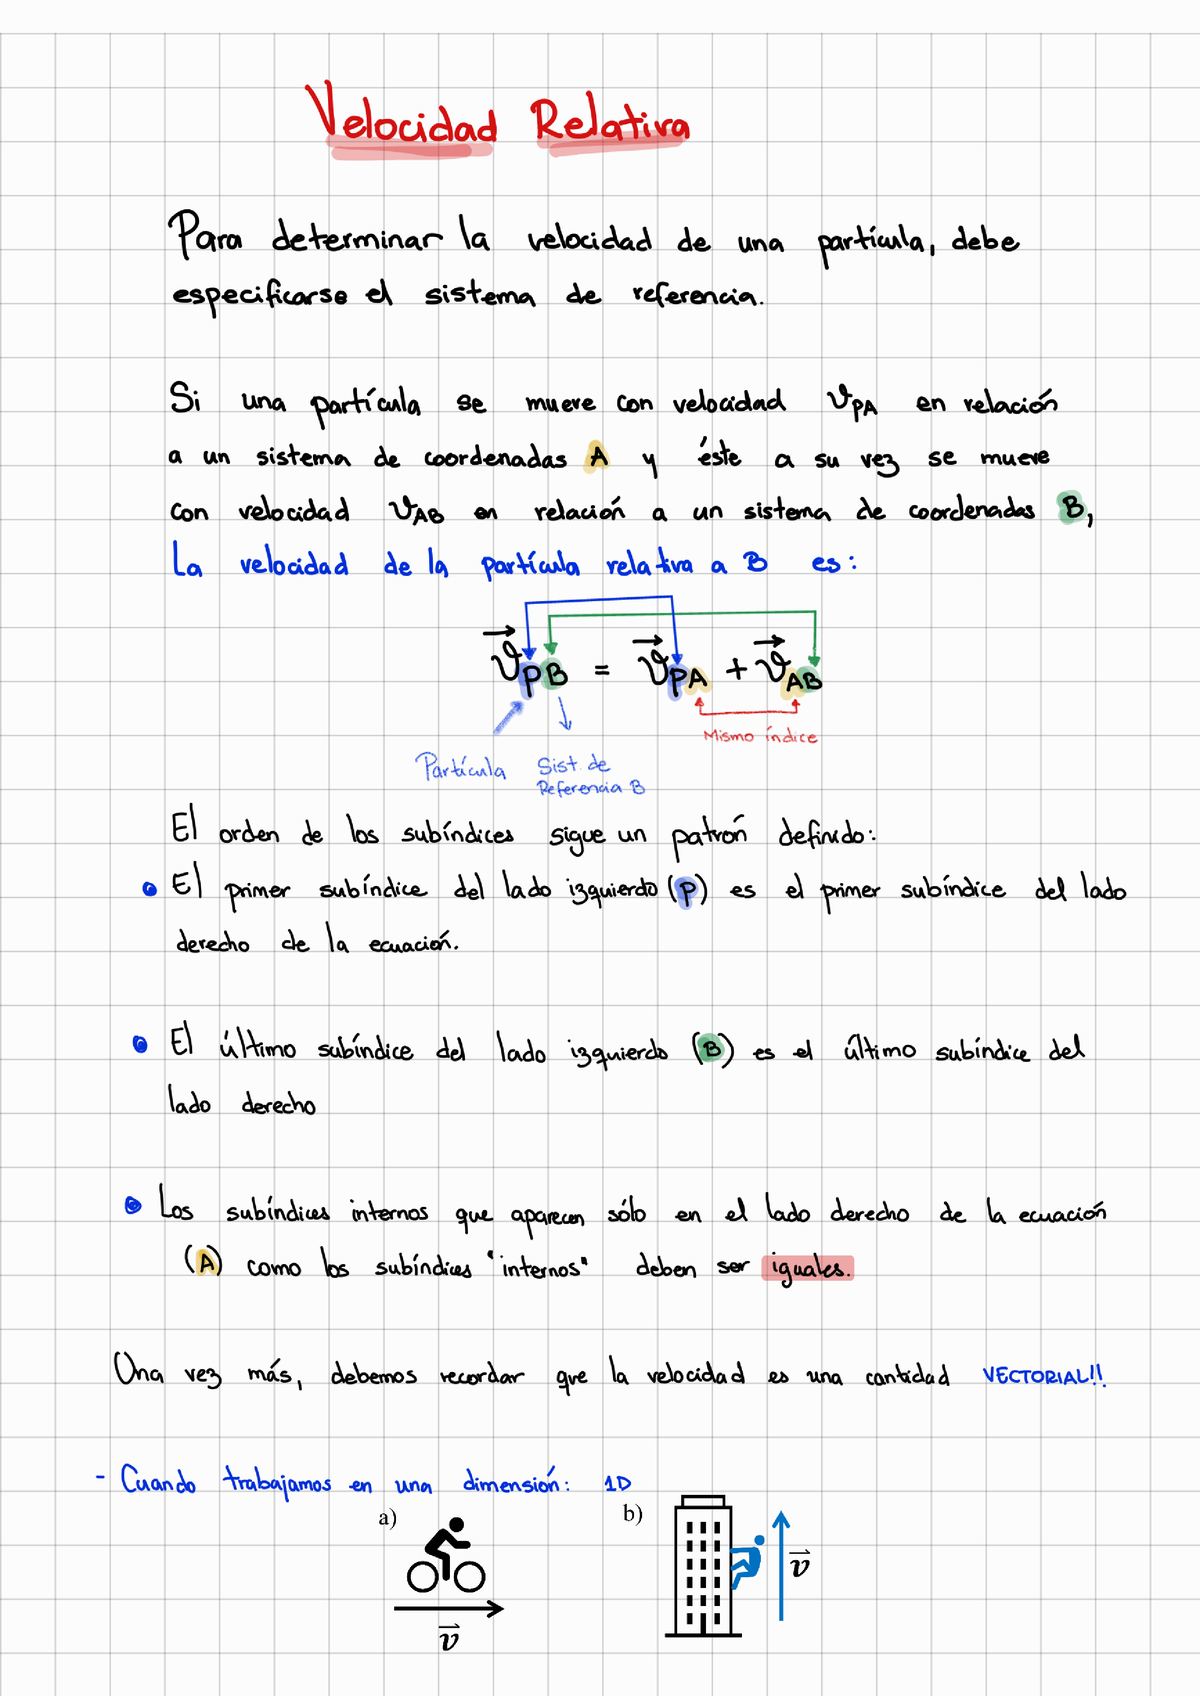 Velocidad Relativa
Para determinar la velocidad de una partícula, debe
especificarse el sistema de referencia.
Si una partícula se mueve con velocidad v_PA en relación
a un sistema de coordenadas A y éste a su vez se mueve
con velocidad v_AB en relación a un sistema de coordenadas B,
La velocidad de la partícula relativa a B es:
v⃗_PB = v⃗_PA + v⃗_AB
Mismo índice
Partícula Sist. de
Referencia B
El orden de los subíndices sigue un patrón definido:
• El primer subíndice del lado izquierdo (P) es el primer subíndice del lado
derecho de la ecuación.
• El último subíndice del lado izquierdo (B) es el último subíndice del
lado derecho
• Los subíndices internos que aparecen sólo en el lado derecho de la ecuación
(A) como los subíndices "internos" deben ser iguales.
Una vez más, debemos recordar que la velocidad es una cantidad VECTORIAL!!
- Cuando trabajamos en una dimensión: 1D
a) b)
v⃗
v⃗